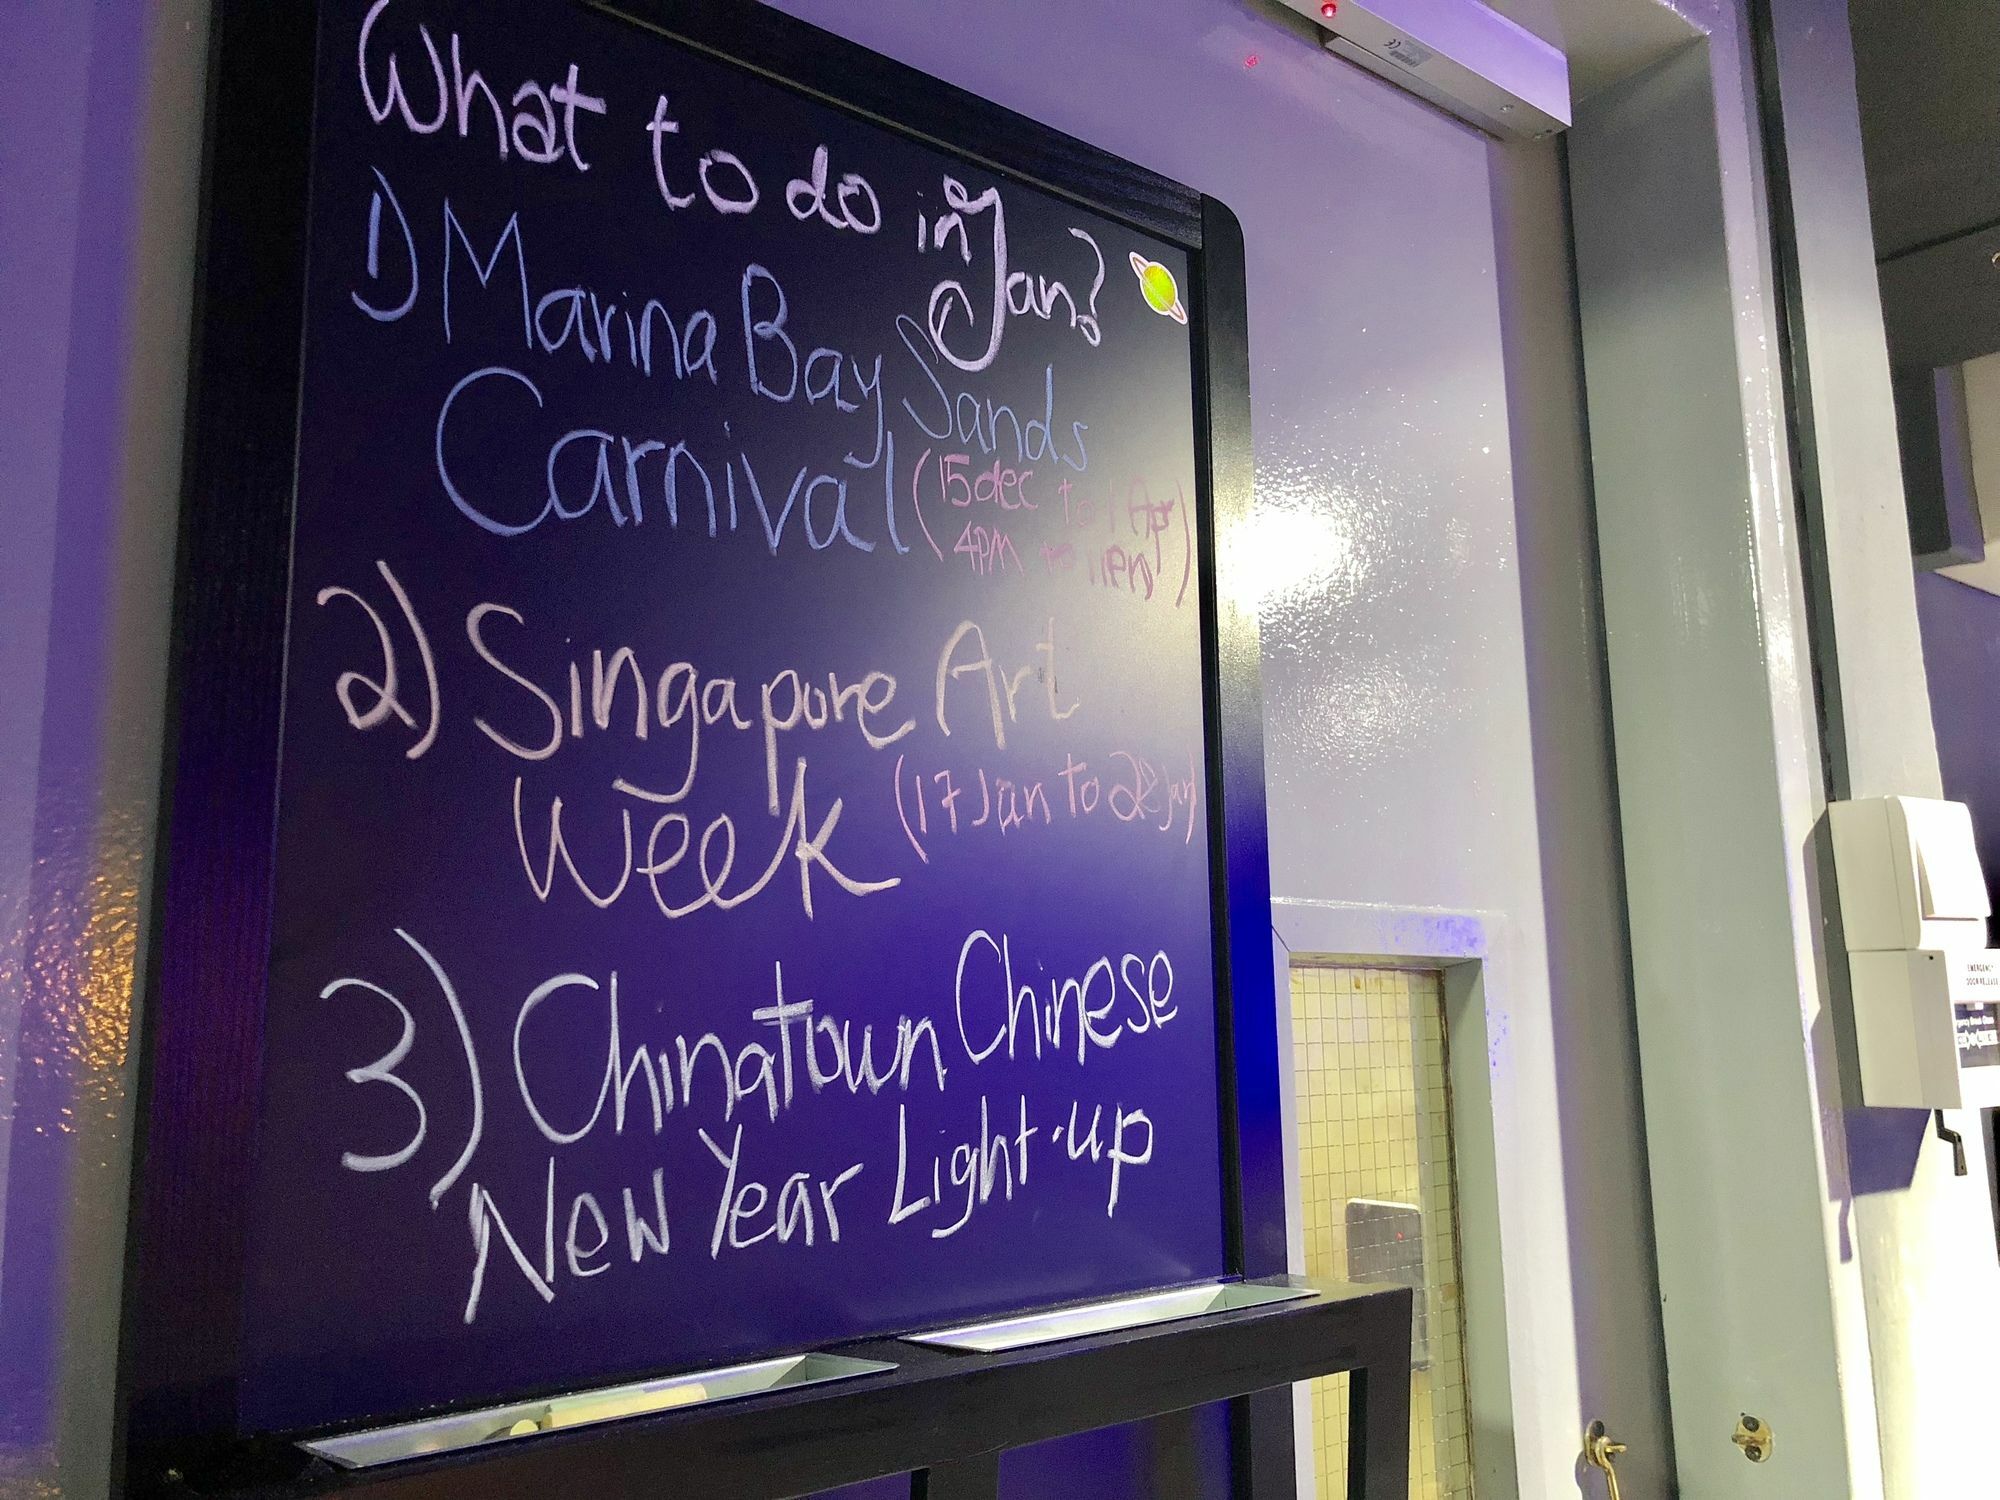 What to do in Jan?
1) Marina Bay Sands
Carnival (15 dec to 1 Apr
4PM to 11PM)
2) Singapore Art
Week (17 Jan to 28 Jan)
3) Chinatown Chinese
New Year Light-up
EMERGENCY
DOOR RELEASE